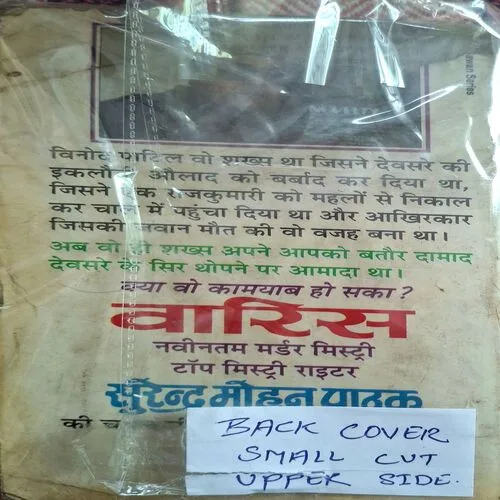 awan Series
विनोद पाटिल वो शख्स था जिसने देवसरे की
इकलौती औलाद को बर्बाद कर दिया था,
जिसने एक राजकुमारी को महलों से निकाल
कर चाल में पहुंचा दिया था और आखिरकार
जिसकी जवान मौत की वो वजह बना था।
अब वो ही शख्स अपने आपको बतौर दामाद
देवसरे के सिर थोपने पर आमादा था।
क्या वो कामयाब हो सका?
वारिस
नवीनतम मर्डर मिस्ट्री
टॉप मिस्ट्री राइटर
सुरेन्द्र मोहन पाठक
की
BACK COVER
SMALL CUT
UPPER SIDE.